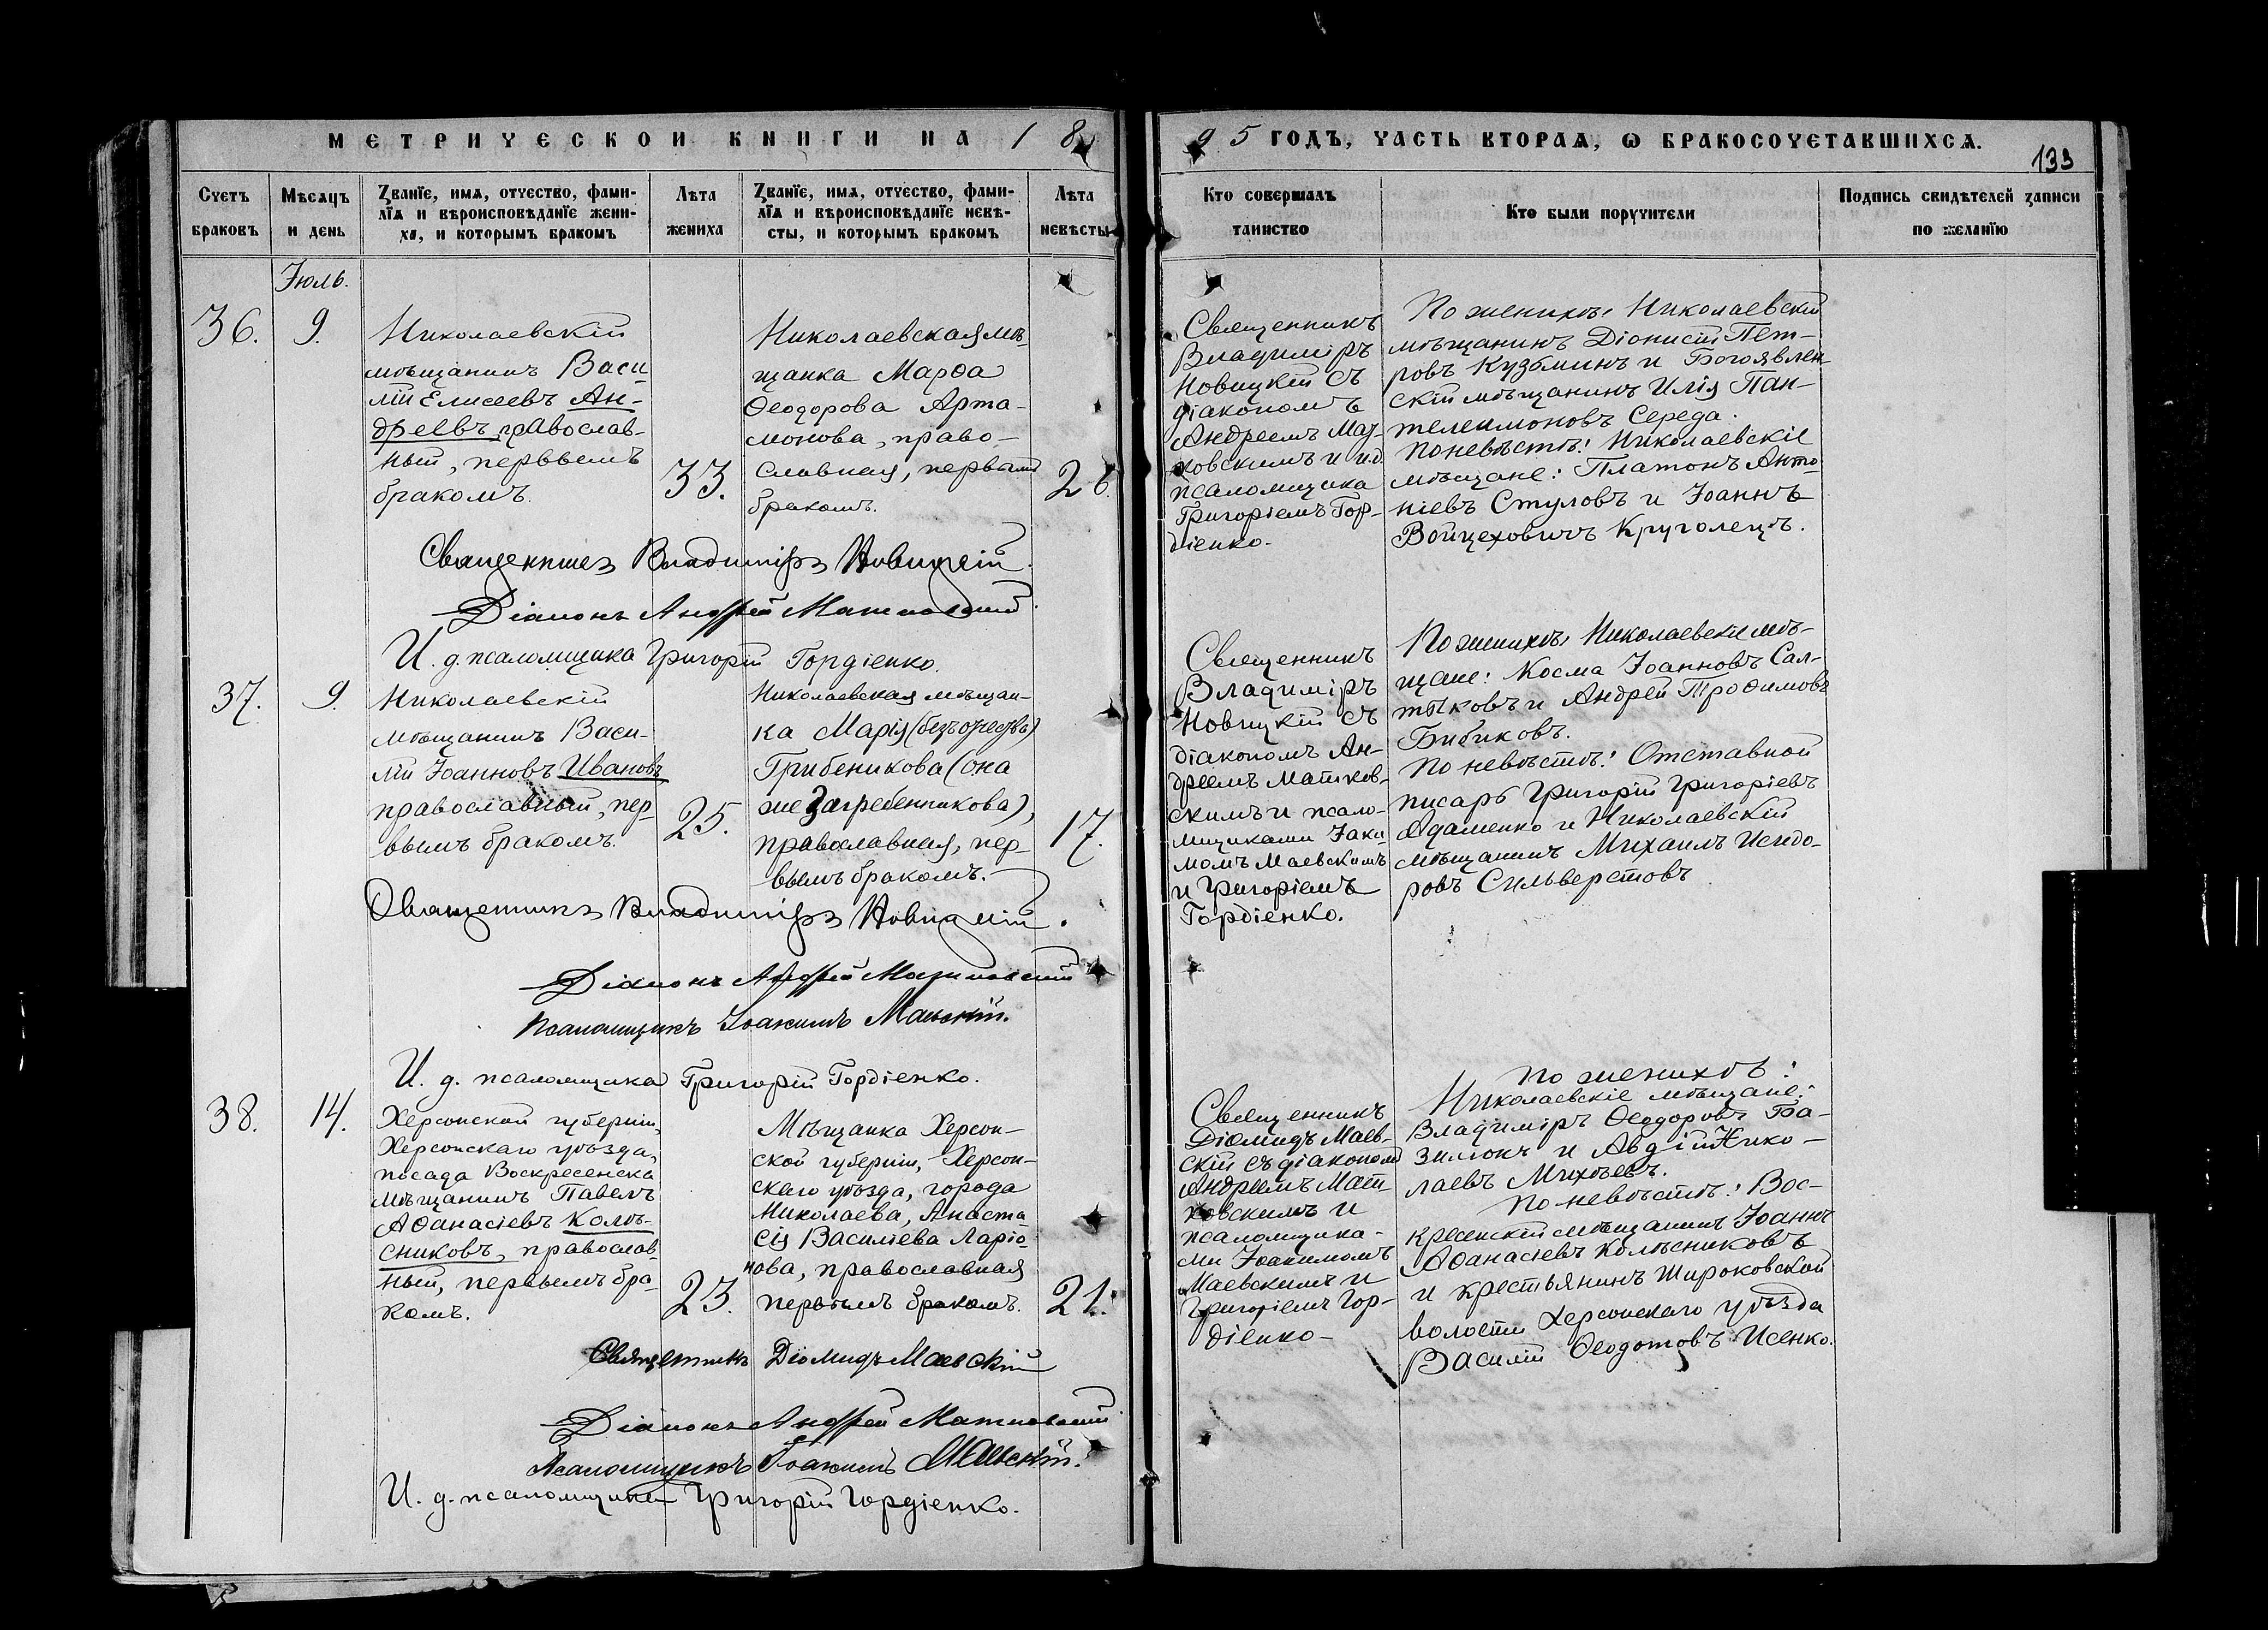 МЕТРИЧЕСКОЙ КНИГИ НА 1895 ГОДЪ, ЧАСТЬ ВТОРАЯ, Ѡ БРАКОСОЧЕТАВШИХСЯ.
133
Счетъ браковъ
Мѣсяцъ и день
Званїе, имя, отчество, фами-
лїя и вѣроисповѣданїе жени-
ха, и которымъ бракомъ
Лѣта жениха
Званїе, имя, отчество, фами-
лїя и вѣроисповѣданїе невѣ-
сты, и которымъ бракомъ
Лѣта невѣсты
Кто совершалъ
таинство
Кто были поручители
Подпись свидѣтелей записи
по желанїю
Іюль.
36.
9.
Николаевскій
мѣщанинъ Васи-
лій Елисеевъ Ан-
дреевъ, православ-
ный, первымъ
бракомъ.
33.
Николаевская мѣ-
щанка Марѳа
Ѳеодорова Арта-
монова, право-
славная, первымъ
бракомъ.
26.
Священникъ
Владиміръ
Новицкій съ
діакономъ
Андреемъ Мат-
ковскимъ и и.д.
псаломщика
Григоріемъ Гор-
діенко.
По женихѣ: Николаевскій
мѣщанинъ Діонисій Пет-
ровъ Кузьминъ и Богоявлен-
скій мѣщанинъ Илія Пан-
телеимоновъ Середа.
По невѣстѣ: Николаевскіе
мѣщане: Платонъ Анто-
ніевъ Стуловъ и Іоаннъ
Войцеховичъ Круголецъ.
Священникъ Владиміръ Новицкій.
Діаконъ Андрей Матковскій.
И. д. псаломщика Григорій Гордіенко.
37.
9.
Николаевскій
мѣщанинъ Васи-
лій Іоанновъ Ивановъ
православный, пер-
вымъ бракомъ.
25.
Николаевская мѣщан-
ка Марія (безъ отчества)
Грибеникова (она
же Загребенникова),
православная, пер-
вымъ бракомъ.
17.
Священникъ
Владиміръ
Новицкій съ
діакономъ Ан-
дреемъ Матков-
скимъ и псало-
мщиками Іаки-
момъ Маевскимъ
и Григоріемъ
Гордіенко.
По женихѣ: Николаевскіе мѣ-
щане: Косма Іоанновъ Сал-
тыковъ и Андрей Трофимовъ
Бибиковъ.
По невѣстѣ: Отставной
писарь Григорій Григоріевъ
Адаменко и Николаевскій
мѣщанинъ Михаилъ Исидо-
ровъ Сильверстовъ
Священникъ Владиміръ Новицкій.
Діаконъ Андрей Матковскій
Псаломщикъ Іоакимъ Маевскій.
И. д. псаломщика Григорій Гордіенко.
38.
14.
Херсонской губерніи,
Херсонскаго уѣзда,
посада Воскресенска
мѣщанинъ Павелъ
Аѳанасіевъ Колѣ-
сниковъ, православ-
ный, первымъ бра-
комъ.
23.
Мѣщанка Херсон-
ской губерніи, Херсон-
скаго уѣзда, города
Николаева, Анаста-
сія Василіева Ларіо-
нова, православная
первымъ бракомъ.
21.
Священникъ
Діомидъ Маев-
скій съ діакономъ
Андреемъ Мат-
ковскимъ и
псаломщика-
ми Іоакимомъ
Маевскимъ и
Григоріемъ Гор-
діенко-
По женихѣ:
Николаевскіе мѣщане:
Владиміръ Ѳеодоровъ Ба-
зилюкъ и Авдій Нико-
лаевъ Михѣевъ.
По невѣстѣ: Вос-
кресенскій мѣщанинъ Іоаннъ
Аѳанасіевъ Колѣсниковъ
и крестьянинъ Широковской
волости Херсонскаго уѣзда
Василій Ѳеодотовъ Исенко.
Священникъ Діомидъ Маевскій
Діаконъ Андрей Матковскій
Псаломщикъ Іоакимъ Маевскій.
И. д. псаломщика Григорій Гордіенко.